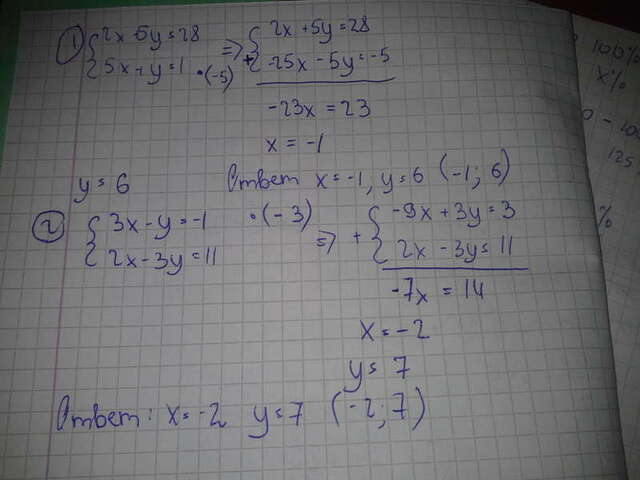 ① { 2x - 5y = 28 => { 2x + 5y = 28
{ 5x + y = 1 ·(-5) + { -25x - 5y = -5
-23x = 23
x = -1
y = 6 Ответ x = -1, y = 6 (-1; 6)
② { 3x - y = -1 ·(-3) => { -9x + 3y = 3
{ 2x - 3y = 11 + { 2x - 3y = 11
-7x = 14
x = -2
y = 7
Ответ: x = -2 y = 7 (-2; 7)
100%
x%
125
%